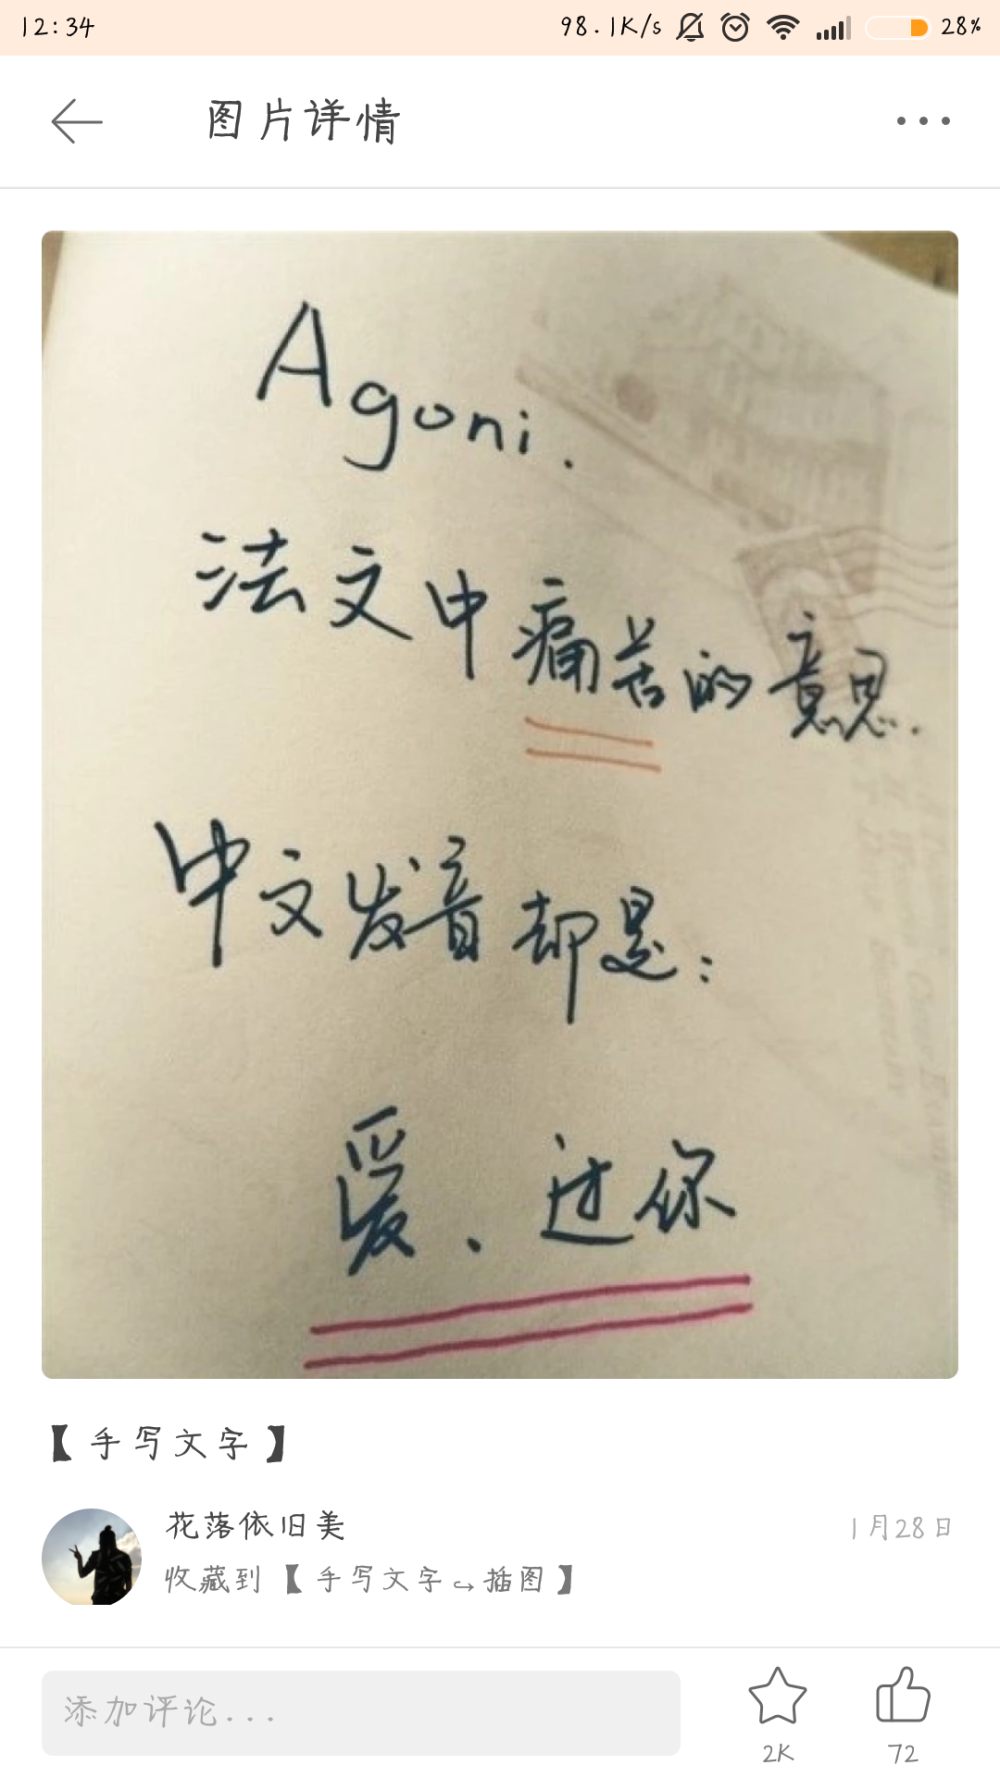 12:34 98.1K/s 28%
图片详情
Agoni.
法文中痛苦的意思.
中文发音却是:
爱、过你
【手写文字】
花落依旧美 1月28日
收藏到【手写文字↪插图】
添加评论...
2K 72